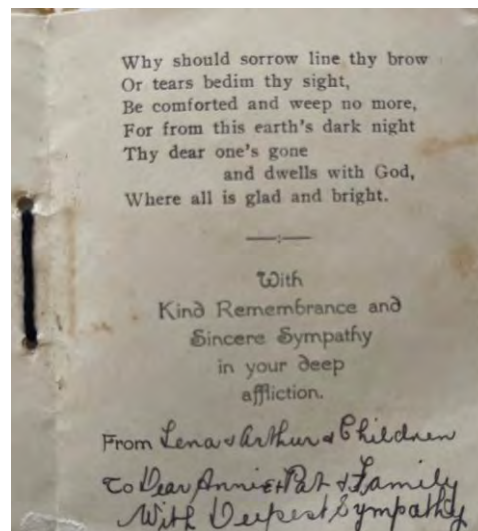 Why should sorrow line thy brow
Or tears bedim thy sight,
Be comforted and weep no more,
For from this earth's dark night
Thy dear one's gone
and dwells with God,
Where all is glad and bright.
With
Kind Remembrance and
Sincere Sympathy
in your deep
affliction.
From Lena & Arthur & Children
To Dear Annie & Pat & Family
With Deepest Sympathy